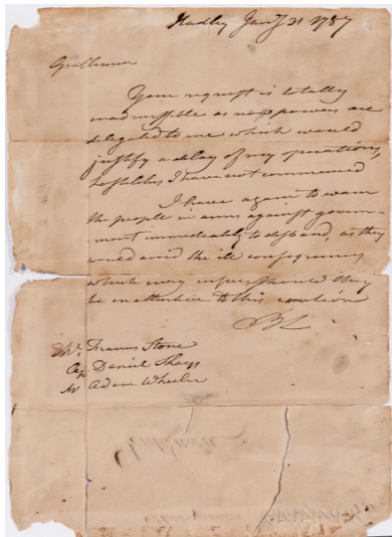 Hadley Jany 31 1787
Gentlemen
Your request is totally
inadmissible as no powers are
delegated to me which would
justify a delay of my operations,
hostilities I have not commenced
I have again to warn
the people in arms against govern-
ment immediately to disband, as they
would avoid the ill consequences
which may ensue should they
be inattentive to this caution
BL
Francis Stone
Daniel Shays
Adam Wheeler